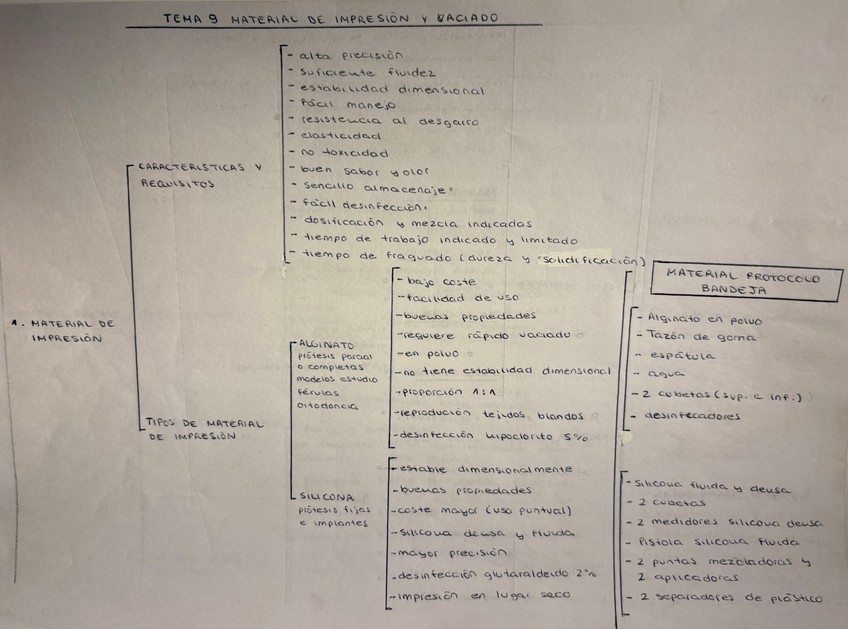 TEMA 9 MATERIAL DE IMPRESIÓN Y VACIADO
1. MATERIAL DE
IMPRESIÓN
CARACTERISTICAS Y
REQUISITOS
- alta precisión
- suficiente fluidez
- estabilidad dimensional
- fácil manejo
- resistencia al desgarro
- elasticidad
- no toxicidad
- buen sabor y olor
- sencillo almacenaje
- fácil desinfección
- dosificación y mezcla indicadas
- tiempo de trabajo indicado y limitado
- tiempo de fraguado (dureza y solidificación)
TIPOS DE MATERIAL
DE IMPRESIÓN
- ALGINATO
prótesis parcial
o completas
modelos estudio
férulas
ortodoncia
- bajo coste
- facilidad de uso
- buenas propiedades
- requiere rápido vaciado
- en polvo
- no tiene estabilidad dimensional
- proporción 1:1
- reprodución tejidos blandos
- desinfección hipoclorito 5%
MATERIAL PROTOCOLO
BANDEJA
- Alginato en polvo
- Tazón de goma
- espátula
- agua
- 2 cubetas (sup. e inf.)
- desinfecadores
- SILICONA
prótesis fijas
e implantes
- estable dimensionalmente
- buenas propiedades
- coste mayor (uso puntual)
- silicona densa y fluida
- mayor precisión
- desinfección glutaraldeido 2%
- impresión en lugar seco
- Silicona fluida y densa
- 2 cubetas
- 2 medidores silicona densa
- Pistola silicona fluida
- 2 puntas mezcladoras y
2 aplicadoras
- 2 separadores de plástico